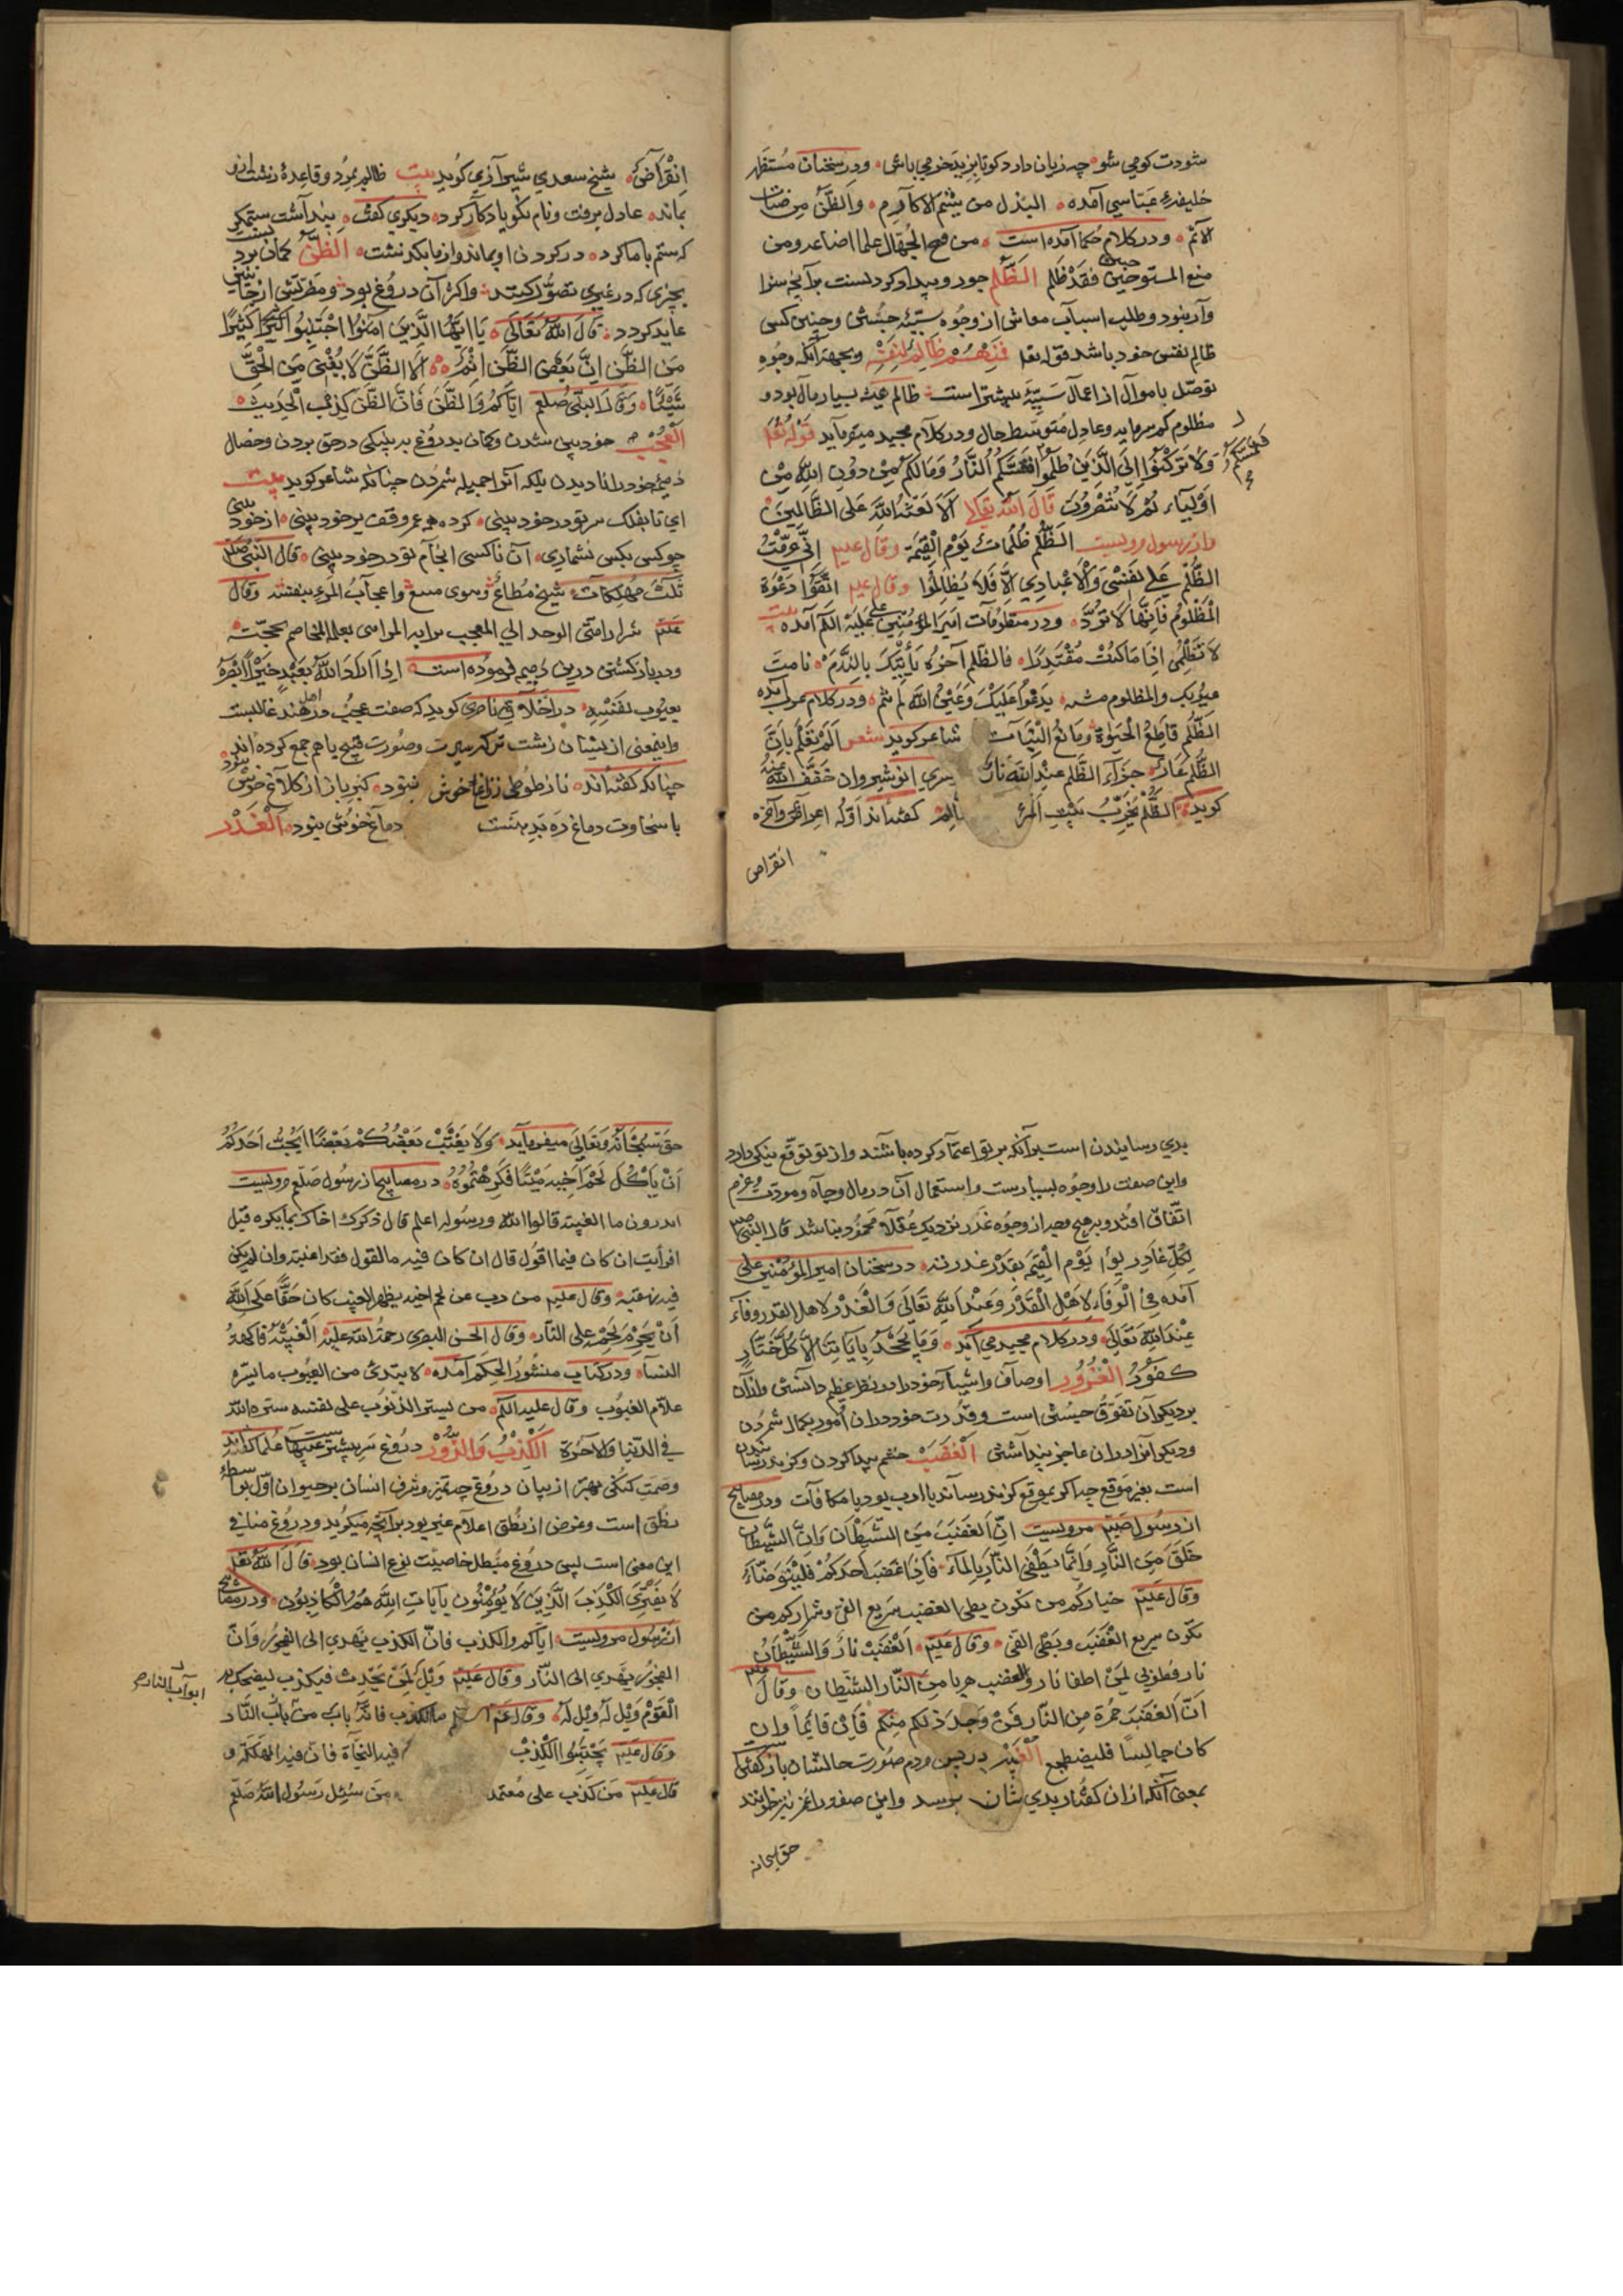 شودت کومی شو چه زیان دارد کو تا بزبد خرمی باشی ودر سخنان مستظهر
خلیفهٔ عباسی آمده البذل من شیم الاکارم والظن من
الاثم ودر کلام حکما آمده است من منح الجهال علما اضاعه ومن
منع المستوجبین فقد ظلم الظلم جور وبیداد کردنست برآنچه سزا
وآر نبود وطلب اسباب معاش از وجوه سیئه خسّش وچنین کسی
ظالم نفس خود باشد قوله تعا فمنهم ظالم لنفسه وبجهة آنکه وجوه
توصّل باموال از اعمال سیّئه بیشتر است ظالم همیشه بسیار مال بود و
مظلوم کم سرمایه وعادل متوسط حال ودر کلام مجید میفرماید قوله تعا
ولا ترکنوا الی الذین ظلموا فتمسّکم النار وما لکم من دون الله من
اولیاء ثم لا تنصرون قال الله تعالی الا لعنة الله علی الظالمین
واز رسول مرویست الظلم ظلمات یوم القیمة وقال علیم انی حرّمت
الظلم علی نفسی وعلی عبادی الا فلا تظالموا وقال علیم اتقوا دعوة
المظلوم فانها لا ترد ودر منظومات امیر المؤمنین علی علیه الکم آمده بیت
لا تظلمن اذا ما کنت مقتدرا فالظلم آخره یأتیک بالندم نامت
عیونک والمظلوم منتبه یدعوا علیک وعین الله لم تنم ودر کلام عرب آمده
الظلم قاطع الحیوة ومانع النبات شاعر کوید شعر الم تعلم بان
الظلم عار جزاء الظلم عند الله نار کسری انوشیروان خفف الله عنه
کوید الظلم یخرّب بیت المرء کفته اند اوّله اعراض وآخره
انقراض
انقراض شیخ سعدی شیرازی کوید بیت ظالم بمرد وقاعدهٔ زشت ازو
بماند عادل برفت ونام نکو یادکار کرد دیکری کفت پنداشت ستمکر
که ستم با ما کرد در کردن او بماند واز ما بکذشت الظن کمان بردن
بچیزی که در غیری تصوّر کنند واکر آن دروغ بود ومضرتش از جانبی
عاید کردد قال الله تعالی یا ایها الذین امنوا اجتنبوا کثیرا
من الظن ان بعض الظن اثم الا الظن لا یغنی من الحق
شیئا وقال النبی صلعم ایاکم والظن فان الظن کذب الحدیث
العجب خود بین شدن وکمان بدروغ بد بنیکی در حق بردن وخصال
ذمیمهٔ خود را نادیدن بلکه آنرا جمیله شمردن چنانکه شاعر کوید بیت
ای تا بفلک سر تو در خود بینی کرده همه عمر وقف بر خود بینی از خود بینی
چو کس بکس نشماری آن ناکسی انجام تو در خود بینی قال النبی صلعم
ثلث مهلکات شح مطاع وهوی متبع واعجاب المرء بنفسه وقال
ودر باز کشتی درین ذمیم فرموده است اذا اراد الله بعبد خیرا ابصره
بعیوب نفسه در اخلاق ناصری کوید که صفت عجب در اهل هند غالبست
وایمعنی ازیشان زشت ترکه سیرت وصورت قبیح باهم جمع کرده اند
چنانکه کفته اند ناز طوطی ز زاغ خوش نبود کبر باز از کلاغ خوش نبود
با سخاوت دماغ ره بد هست دماغ خوش نبود الغدر
بدی رسانیدن است برآنکه بر تو اعتماد کرده باشند واز تو توقع نیکی دارد
واین صفت را وجوه بسیارست واستعمال آن در مال وجاه ومودت وحرم
اتفاق افتد وبهیچ وجه از وجوه غدر نزدیک عقلا محمود نباشد قال النبی صلعم
لکل غادر لواء یوم القیمة بقدر غدرته در سخنان امیر المؤمنین علی
آمده الوفاء لاهل الغدر غدر عند الله تعالی والغدر لاهل الغدر وفاء
عند الله تعالی ودر کلام مجید می آید وما یجحد بآیاتنا الا کل ختار
کفور الغرور اوصاف واشیاء خود را در نظر عظیم دانستن وازان
بر دیکران تفوق جستن است وقدرت خود در ان امور بکمال شمردن
ودیکر آنرا دران عاجز پنداشتن الغضب خشم پیدا کردن وکزند رسانیدن
است بغیر موقع چه اکر بموقع کزند رساند یا ادب بود یا مکافات ودر مصابیح
از رسول صلعم مرویست ان الغضب من الشیطان وان الشیطان
خلق من النار وانما یطفی النار بالماء فاذا غضب احدکم فلیتوضاء
وقال علیم خیارکم من تکون بطی الغضب سریع الفی وشرارکم من
تکون سریع الغضب وبطی الفی وقال علیم الغضب نار والشیطان
ان الغضب جمرة من النار فمن وجد ذلکم منکم قائما وان
کان جالسا فلیضطجع الغیبة در پس مردم صورت حالشان باز کفتن
بمعنی آنکه ازان کفتار بدی بشان برسد واین صفت را غیر نیز خوانند
حق سبحانه
حق سبحانه وتعالی میفرماید ولا یغتب بعضکم بعضا ایحب احدکم
ان یأکل لحم اخیه میتا فکرهتموه در مصابیح از رسول صلعم مرویست
اتدرون ما الغیبة قالوا الله ورسوله اعلم قال ذکرک اخاک بما یکره قیل
افرأیت ان کان فیما اقول قال ان کان فیه ما تقول فقد اغتبته وان لم یکن
فیه بهتّه وقال علیم من ذب عن لحم اخیه بظهر الغیب کان حقا علی الله
ان یحرم لحمه علی النار وقال الحسن البصری رحمة الله علیه الغیبة فاکهة
النساء ودر کتاب منثور الحکم آمده لا تبتدی من العیوب ما ستره
علام الغیوب وقال علیه الکم من یستر الذنوب علی نفسه ستره الله
فی الدنیا والآخرة الکذب والزور دروغ سر بیشتر عیبها علما کفته اند
وصمت کنکی بهتر از بیان دروغ چه تمیز وشرف انسان بر حیوان اوّل بواسطهٔ
نطق است وغرض از نطق اعلام غیر بود برآنچه میکوید ودروغ منافی
این معنی است پس دروغ مبطل خاصیت نوع انسان بود قال الله تعا
لا یفتری الکذب الذین لا یؤمنون بآیات الله هم الکاذبون ودر مصابیح
از رسول مرویست ایاکم والکذب فان الکذب یهدی الی الفجور وان
الفجور یهدی الی النار وقال علیم ویل لمن یحدث فیکذب لیضحک به
ابواب النار صح
القوم ویل له ویل له وقال علیم الکذب فانه باب من باب النار
وقال علیم تجتنبوا الکذب فیه النجاة فان فیه الهلکة و
قال علیم من کذب علی معتمد من سئل رسول الله صلعم